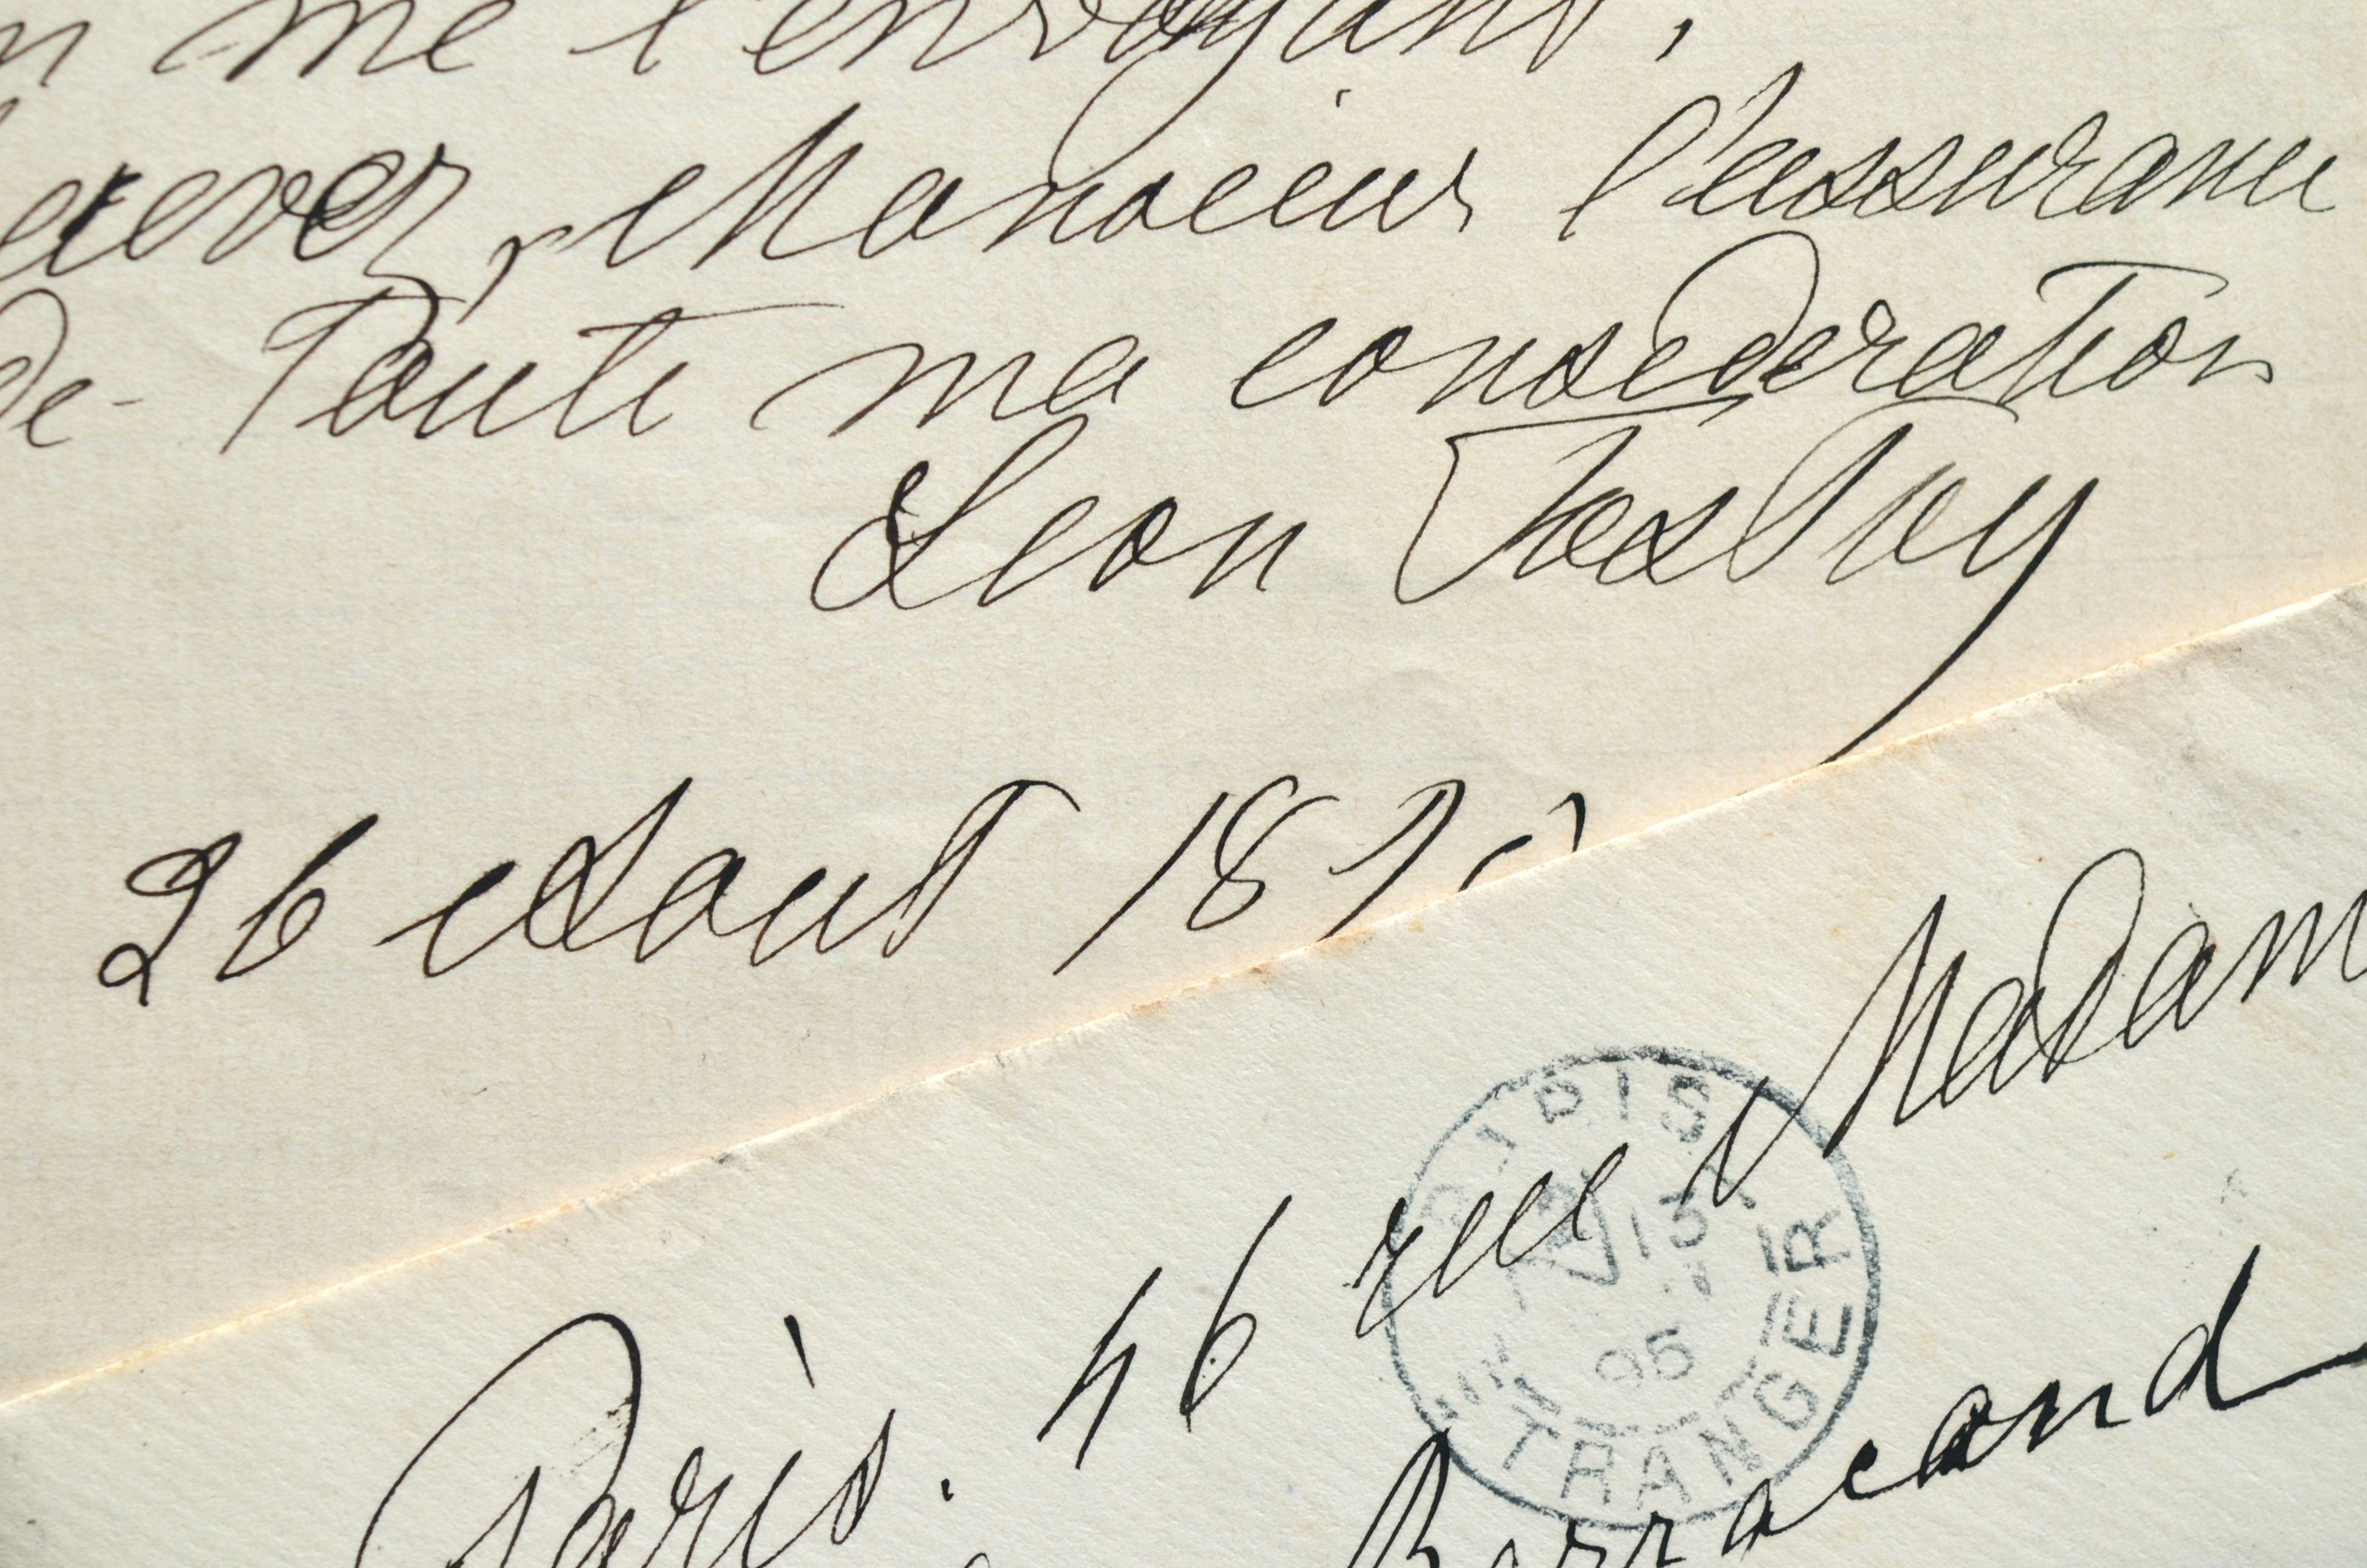 me l'envoyant.
Recevez, Monsieur l'assurance
de toute ma consideration
Leon Tolstoy
26 Aout 189
46 rue Madam
Paris.
Barracand
PARIS
13
95
ETRANGER